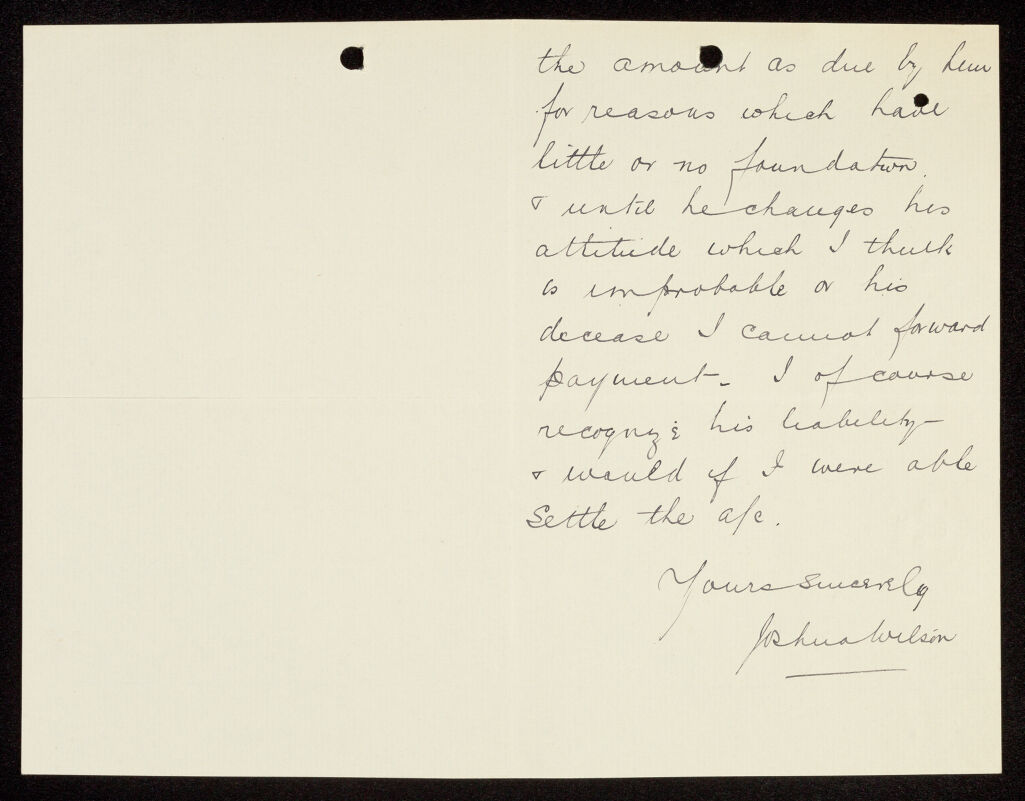 the amount as due by him
for reasons which have
little or no foundation.
& until he changes his
attitude which I think
is improbable or his
decease I cannot forward
payment - I of course
recognize his liability -
& would if I were able
Settle the a/c.
Yours Sincerely
Joshua Wilson